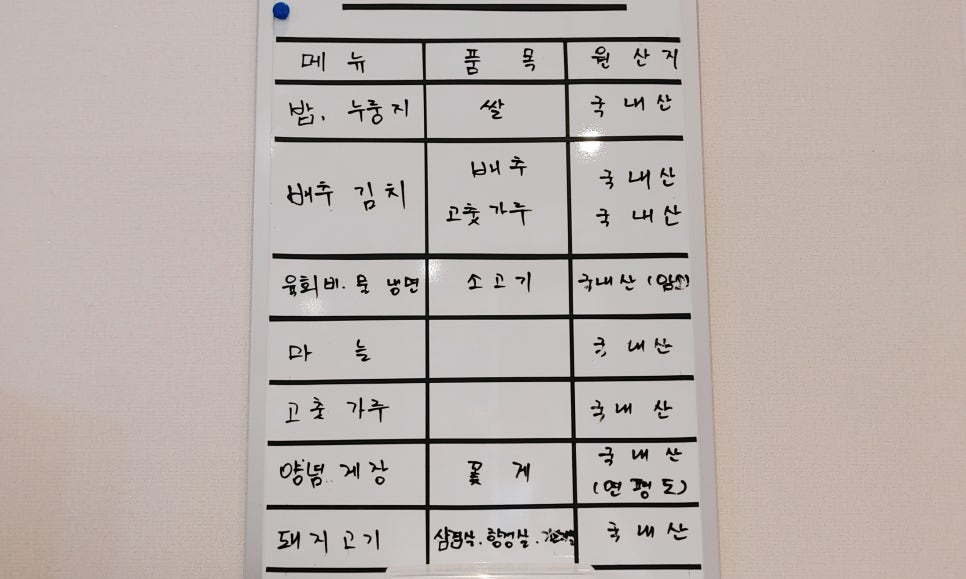 메뉴 품목 원산지
밥, 누룽지 쌀 국내산
배추 김치 배추 국내산
고춧가루 국내산
육회비.물 냉면 소고기 국내산 (암소)
마늘 국내산
고춧가루 국내산
양념게장 꽃게 국내산
(연평도)
돼지고기 삼겹살.항정살. 국내산